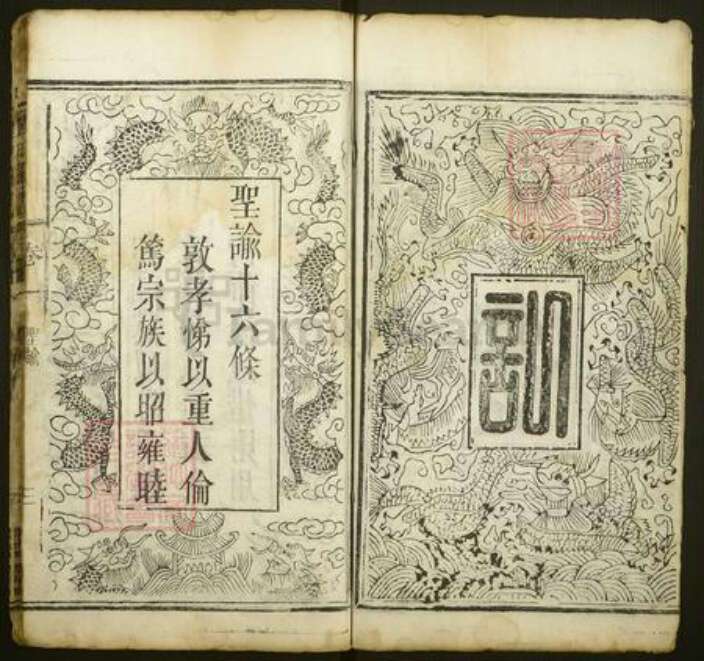 訓
聖諭十六條
敦孝悌以重人倫
篤宗族以昭雍睦